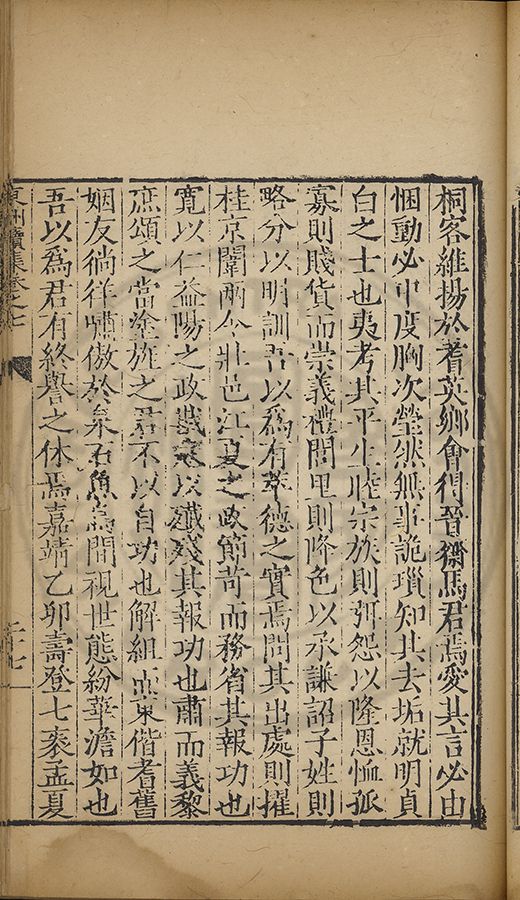 桐客維揚於耆英鄉會得晉齋馬君焉愛其言必由
悃動必中度胸次瑩然無事詭瑣知其去垢就明貞
白之士也夷考其平生睦宗族則弭怨以隆恩恤孤
寡則賤貨而崇義禮閭里則降色以承謙詔子姓則
略分以明訓吾以為有萃德之實焉問其出處則擢
桂京闈兩令壯邑江夏之政節苛而務省其報功也
寬以仁益陽之政戢以殲其報功也肅而義黎
庶頌之當塗旌之君不以自功也解組東偕耆舊
姻友徜徉嘯傲於泉石魚鳥間視世態紛華澹如也
吾以為君有終譽之休焉嘉靖乙卯壽登七袠孟夏
東洲續集卷之七
二十七